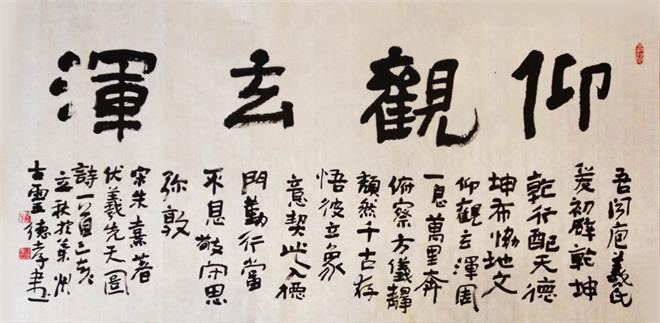 仰觀玄渾
吾闻庖羲氏
爰初辟乾坤
乾行配天德
坤布協地文
仰觀玄渾周
一息萬里奔
俯察方儀靜
頹然千古存
悟彼立象
意契此入德
門勤行當
不息敬守思
弥敦
宋朱熹著
伏羲先天圖
詩一首己亥
立秋於州
古德孝書